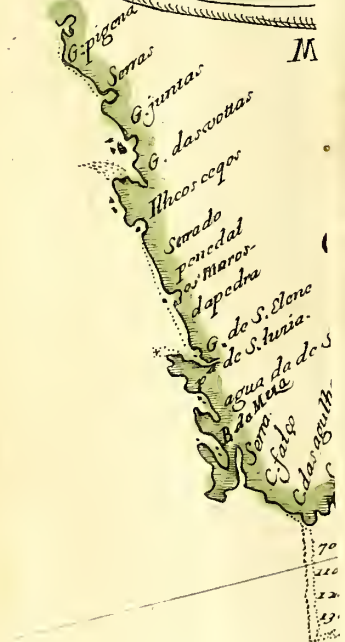 M
G. pigena
Serras
G. juntas
G. das voltas
Ilheos ceqos
Serra do
penedal
os maros-
da pedra
G. de S. Elene
de S. luria.
agua da de S
B da Mesa
Serra.
C. falço
C. das agulh-
70
110
12.
13.